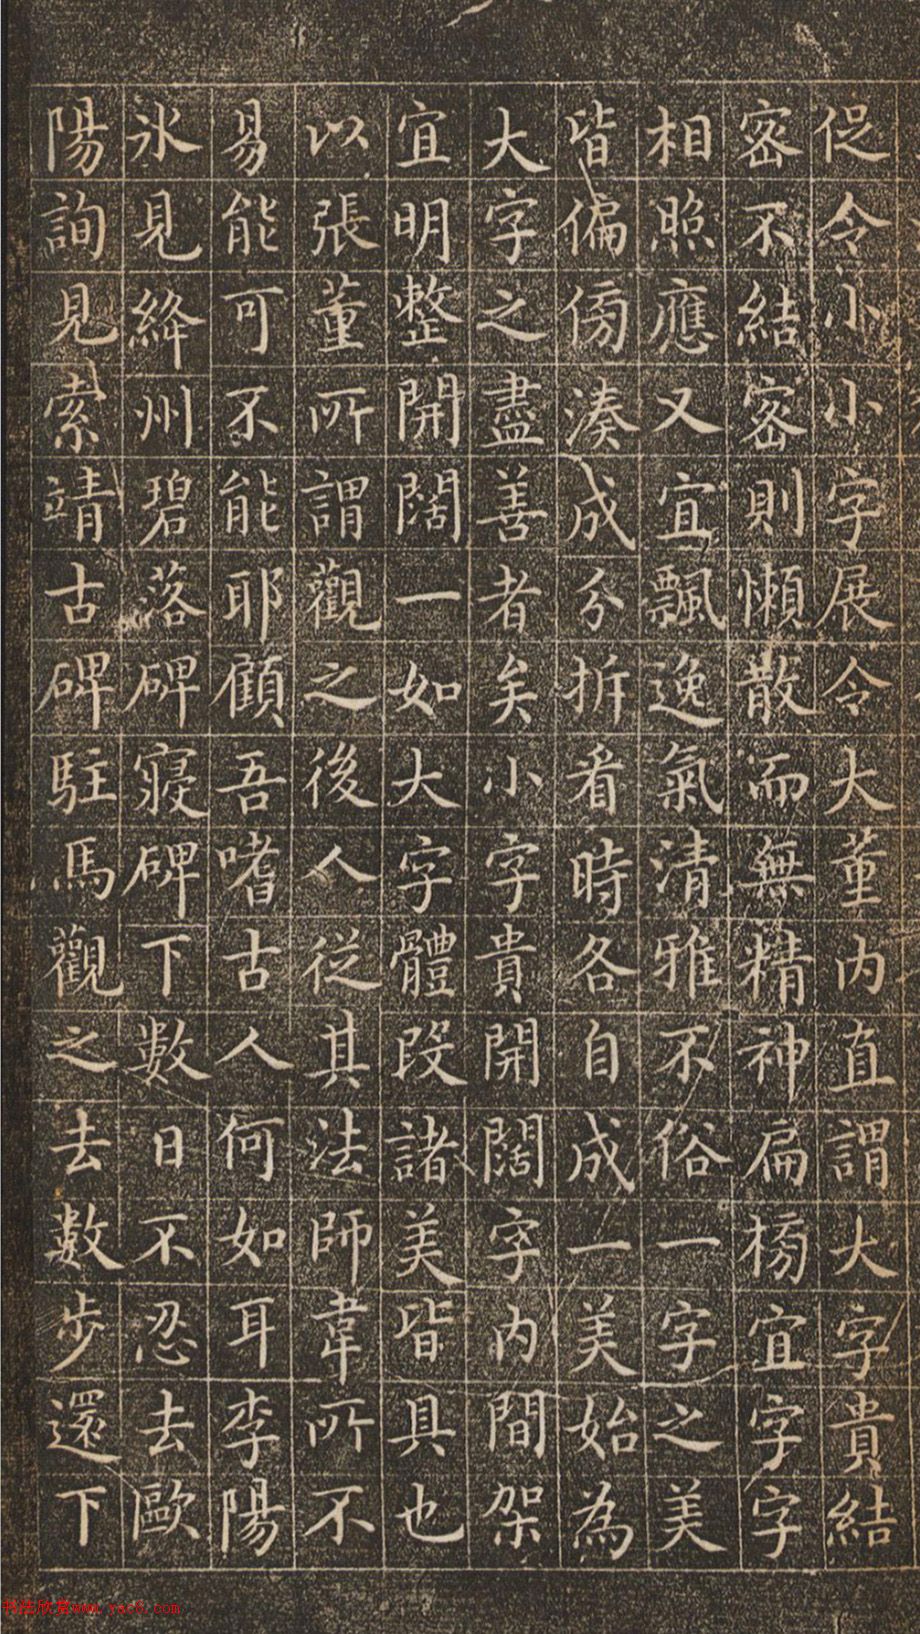 促令小小字展令大董内直謂大字貴結
密不結密則懶散而無精神扁榜宜字字
相照應又宜飄逸氣清雅不俗一字之美
皆偏傍湊成分拆看時各自成一美始為
大字之盡善者矣小字貴開闊字内間架
宜明整開闊一如大字體段諸美皆具也
以張董所謂觀之後人從其法師韋所不
易能可不能耶顧吾嗜古人何如耳李陽
氷見絳州碧落碑寢碑下數日不忍去歐
陽詢見索靖古碑駐馬觀之去數步還下
书法欣赏www.yac8.com